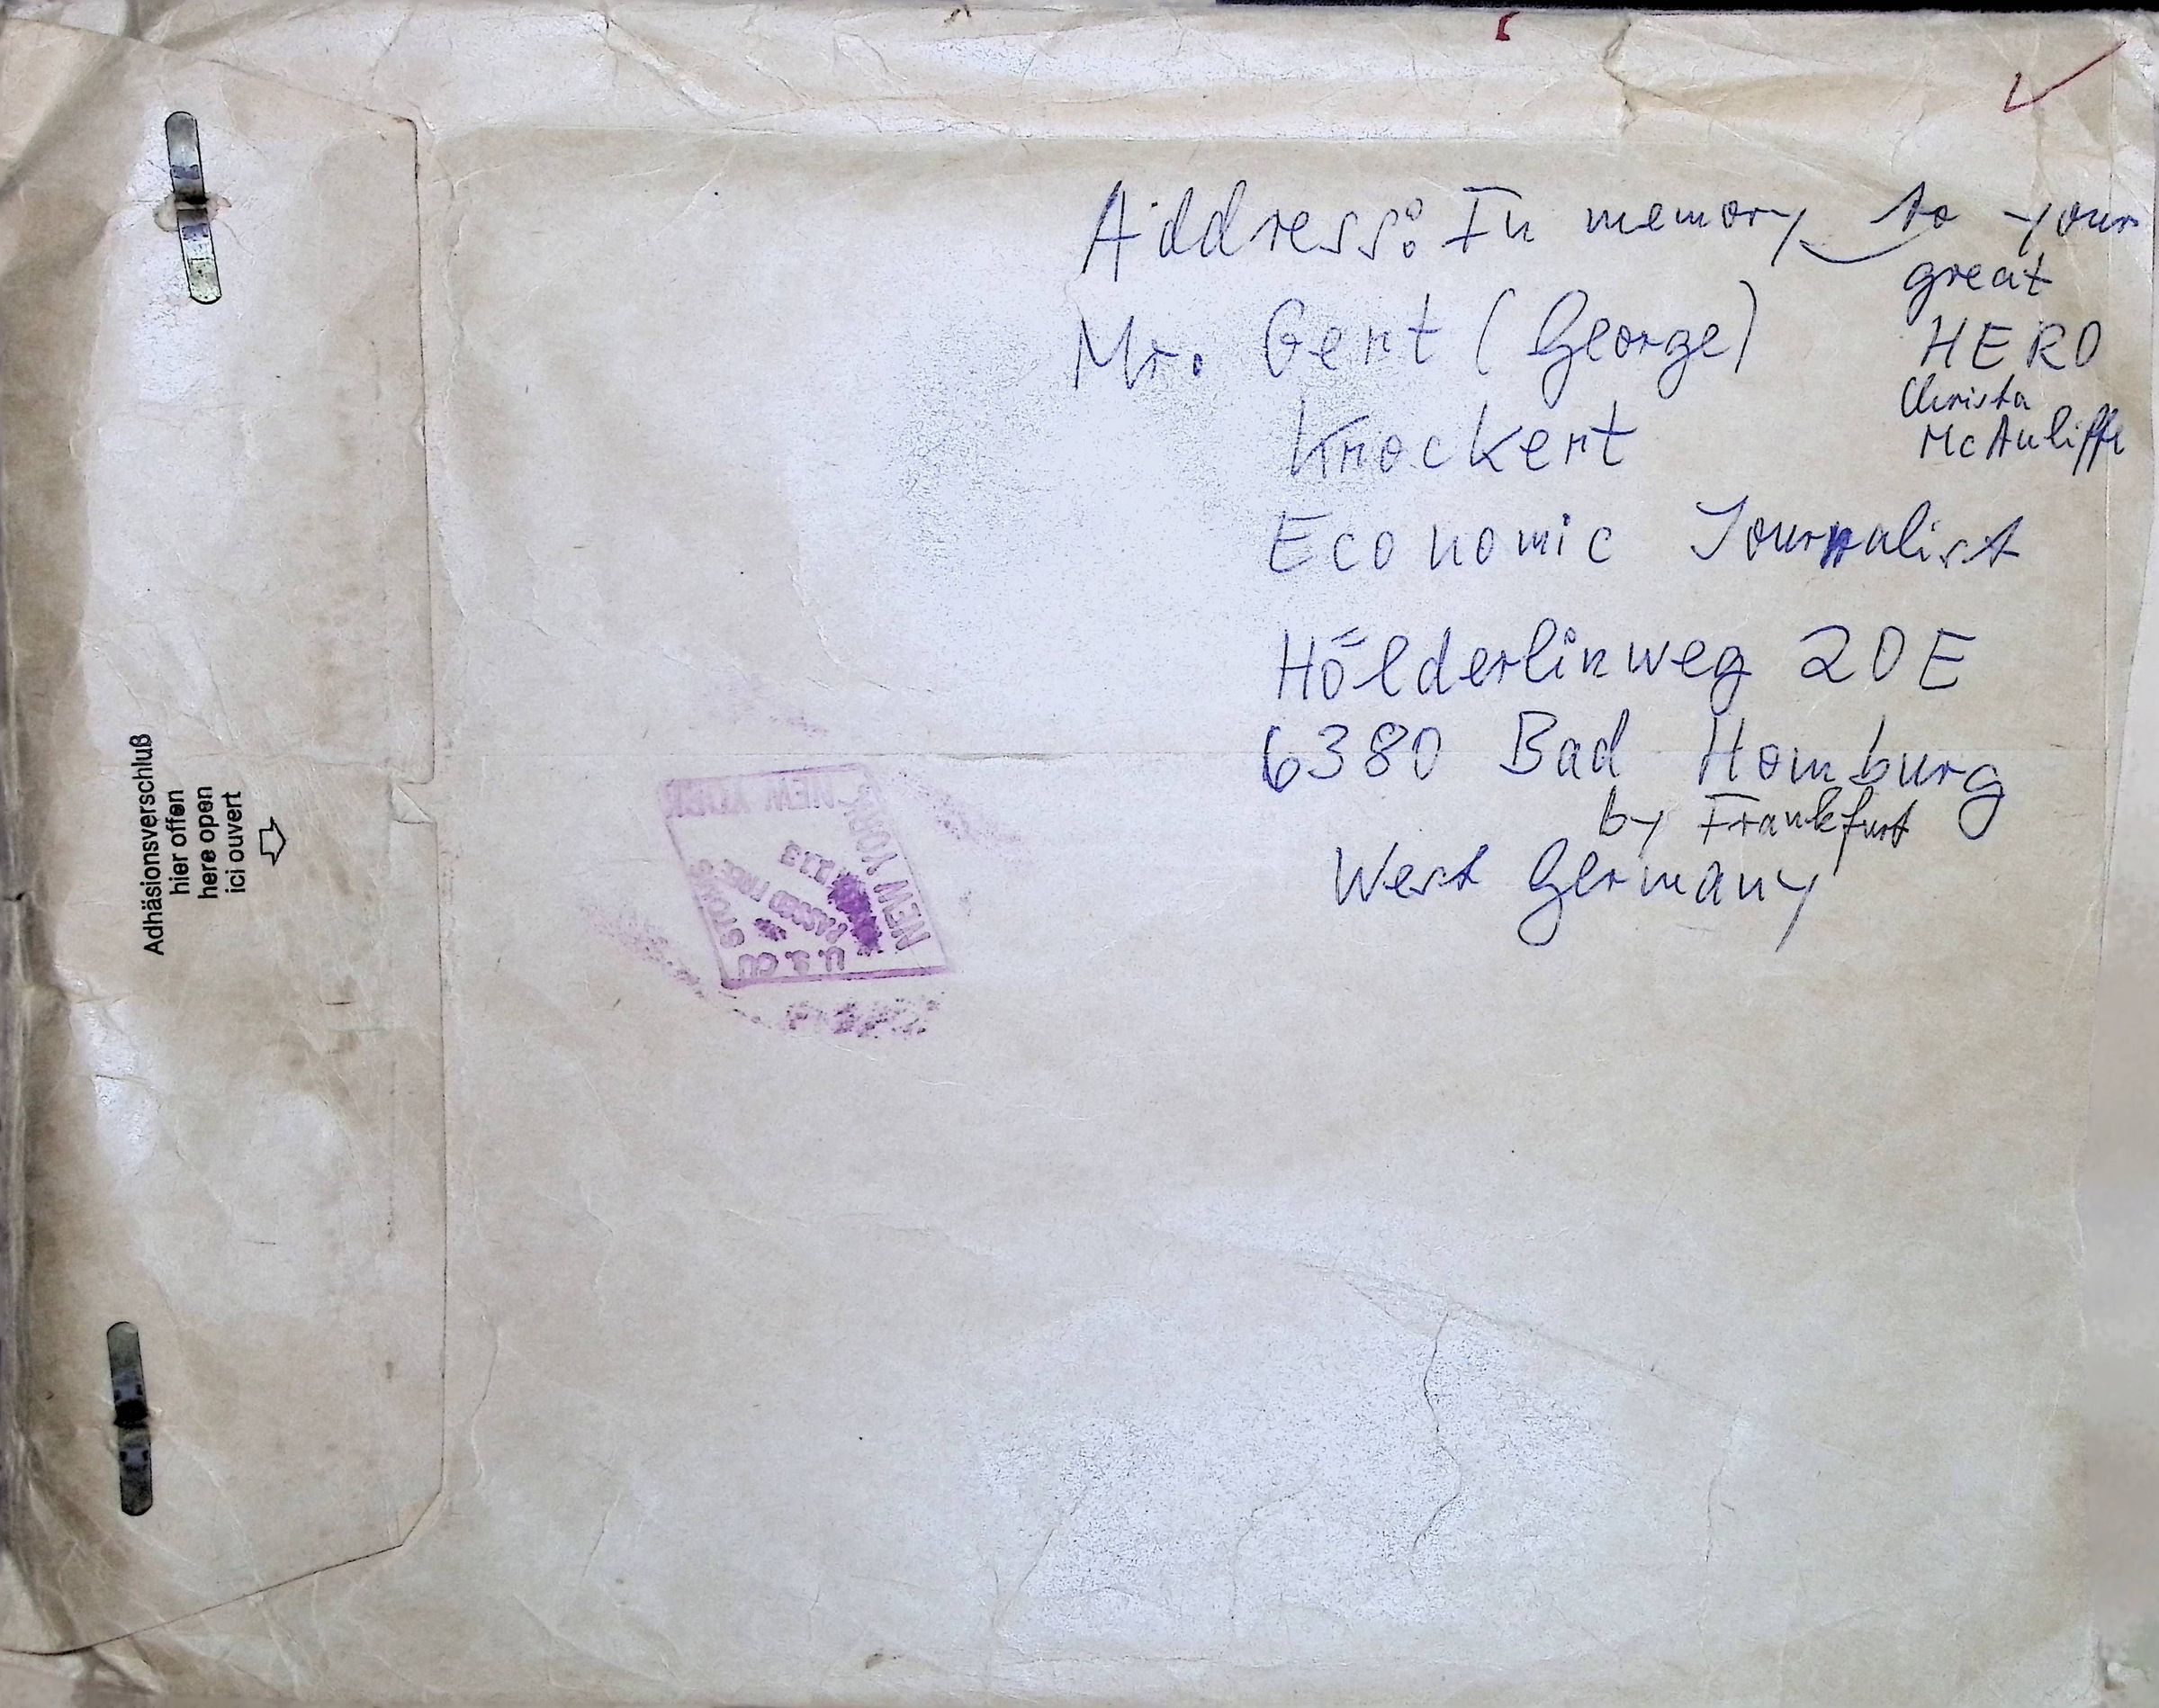 Address: In memory to your
great
HERO
Christa
McAuliffe
Mr. Gert (George)
Krockert
Economic Journalist
Hölderlinweg 20E
6380 Bad Homburg
by Frankfurt
West Germany
Adhäsionsverschluß
hier offen
here open
ici ouvert
NEW YORK
NEW YORK
U.S. CUSTOMS
PASSED FREE